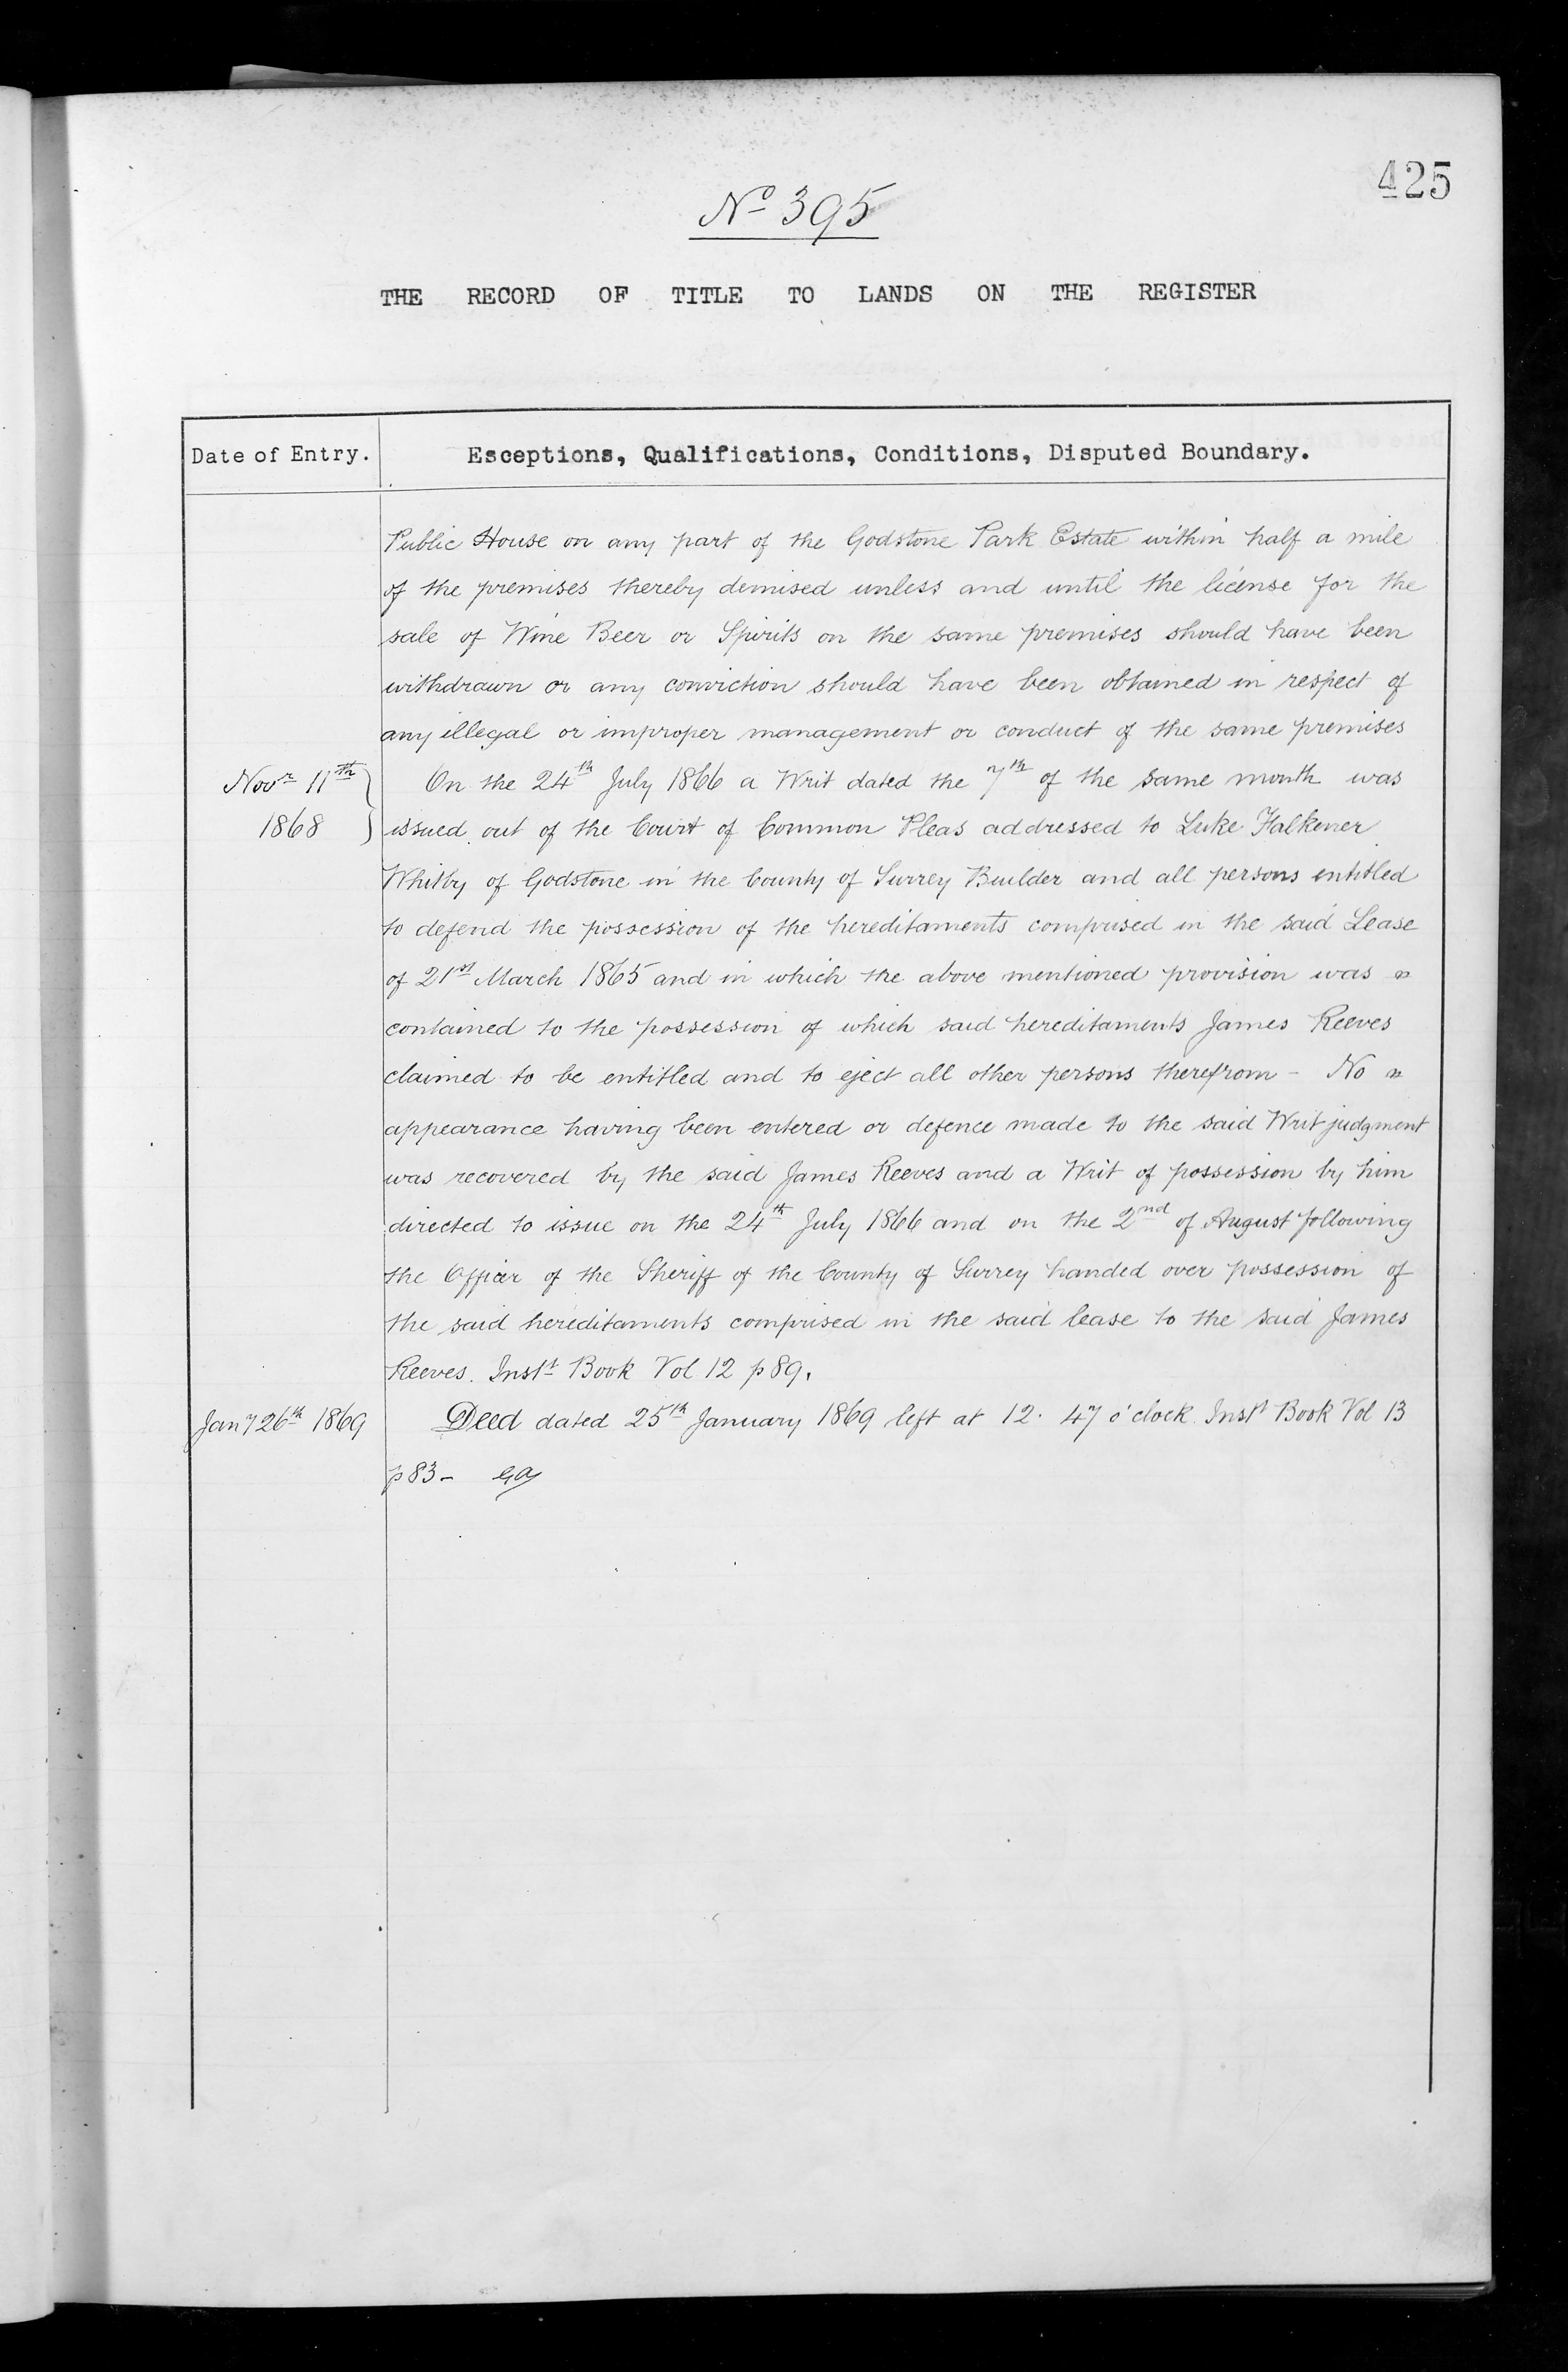 425
No 395
THE RECORD OF TITLE TO LANDS ON THE REGISTER
Date of Entry.
Esceptions, Qualifications, Conditions, Disputed Boundary.
Public House on any part of the Godstone Park Estate within half a mile
of the premises thereby demised unless and until the license for the
sale of Wine Beer or Spirits on the same premises should have been
withdrawn or any conviction should have been obtained in respect of
any illegal or improper management or conduct of the same premises
Novr 11th
1868
On the 24th July 1866 a Writ dated the 7th of the same month was
issued out of the Court of Common Pleas addressed to Luke Falkener
Whitby of Godstone in the County of Surrey Builder and all persons entitled
to defend the possession of the hereditaments comprised in the said Lease
of 21st March 1865 and in which the above mentioned provision was
contained to the possession of which said hereditaments James Reeves
claimed to be entitled and to eject all other persons therefrom - No
appearance having been entered or defence made to the said Writ judgment
was recovered by the said James Reeves and a Writ of possession by him
directed to issue on the 24th July 1866 and on the 2nd of August following
the Officer of the Sheriff of the County of Surrey handed over possession of
the said hereditaments comprised in the said lease to the said James
Reeves. Inst Book Vol 12 p 89.
Jany 26th 1869
Deed dated 25th January 1869 left at 12. 47 o'clock. Inst Book Vol 13
p 83 -